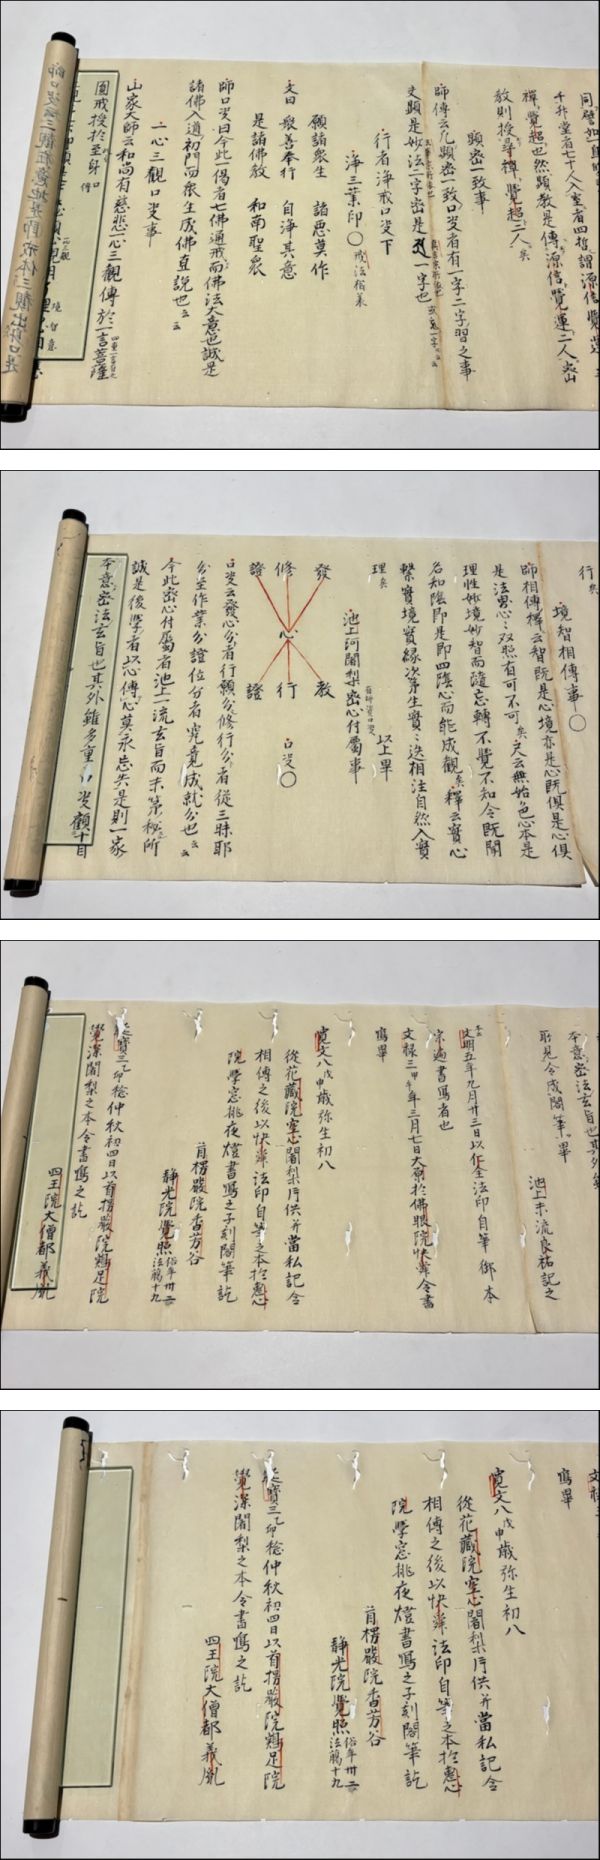 千升堂者七十人入室者四哲謂源信覺運
禪覺超也然顯教是傳源信覺運二人矣山
教則授尋禪覺超二人矣
顯密一致事
師傳云凡顯密一致口决者有一字二字習之事
文顯是妙法二字密是
一字也
行者淨戒口决下
淨三業印〇
願諸衆生 諸惡莫作
文曰 衆善奉行 自淨其意
是諸佛教 和南聖衆
師口决曰今此一偈者七佛通戒而佛法大意也誠是
諸佛入道初門而衆生成佛直説也云云
一心三觀口决事
山家大師云和尚有慈悲一心三觀傳於一言菩薩
圓戒授於至身口
行矣
境智相傳事〇
師相傳釋云智既是心境亦是心既俱是心俱
是法界心心双照有可不可矣又云無始色心本是
理性妙境妙智而隨忘轉不覺不知今既聞
名知陰即是即四陰心而能成觀矣釋云實心
繫實境實緣次第生實實迭相注自然入實
理矣 以上畢
池上阿闍梨密心付屬事
發 教
修 心 行 口决〇
證 證
口决云發心分者行願分修行分者從三昧耶
分至作業分證位分者究竟成就分也云云
今此密心付屬者池上一流玄旨而未第秘所
誠是後學者以心傳心莫永忘失是則一家
本意密法玄旨也其外雖多重口决顧十目
本意密法玄旨也其外
所見令成閣筆畢
池上末流良祐記之
本云
文明五年九月廿三日以仁全法印自筆御本
宗遍書寫者也
文禄三甲午年三月七日大原於佛眼院快運令書
寫畢
寛文八戊申歳弥生初八
從花藏院空心闍梨片供并當私記令
相傳之後以快運法印自筆之本於惠心
院學窓挑夜燈書寫之子刻閣筆訖
首楞嚴院香芳谷
靜光院覺照 俗年卅二 法﨟十九
延寳三乙卯稔仲秋初四日以首楞嚴院鷄足院
覺深闍梨之本令書寫之訖
四王院大僧都義胤
寫畢
寛文八戊申歳弥生初八
從花藏院空心闍梨片供并當私記令
相傳之後以快運法印自筆之本於惠心
院學窓挑夜燈書寫之子刻閣筆訖
首楞嚴院香芳谷
靜光院覺照 俗年卅二 法﨟十九
延寳三乙卯稔仲秋初四日以首楞嚴院鷄足院
覺深闍梨之本令書寫之訖
四王院大僧都義胤